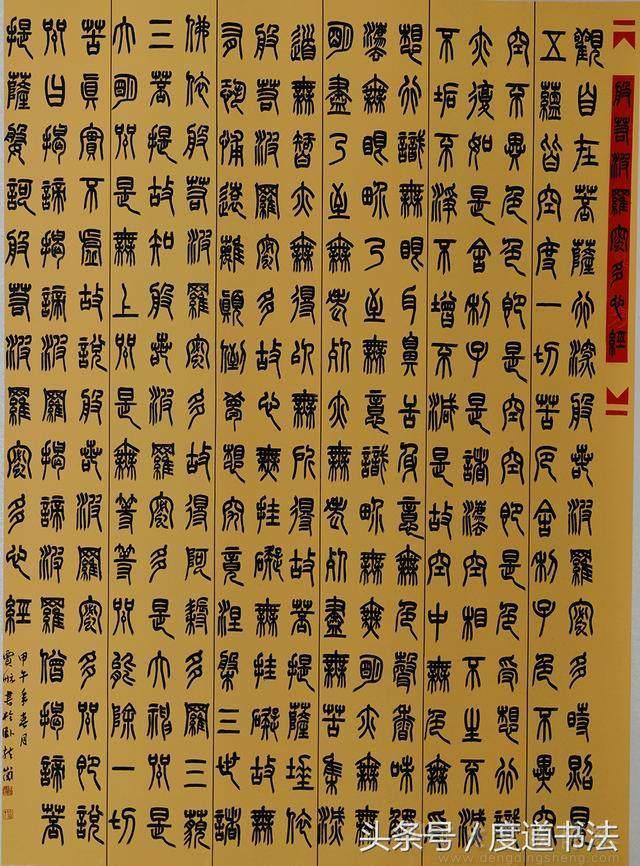 般若波羅蜜多心經
觀自在菩薩行深般若波羅蜜多時照見
五蘊皆空度一切苦厄舍利子色不異空
空不異色色即是空空即是色受想行識
亦復如是舍利子是諸法空相不生不滅
不垢不淨不增不減是故空中無色無受
想行識無眼耳鼻舌身意無色聲香味觸
法無眼界乃至無意識界無無明亦無無
明盡乃至無老死亦無老死盡無苦集滅
道無智亦無得以無所得故菩提薩埵依
般若波羅蜜多故心無罣礙無罣礙故無
有恐怖遠離顛倒夢想究竟涅槃三世諸
佛依般若波羅蜜多故得阿耨多羅三藐
三菩提故知般若波羅蜜多是大神咒是
大明咒是無上咒是無等等咒能除一切
苦真實不虛故說般若波羅蜜多咒即說
咒曰揭諦揭諦波羅揭諦波羅僧揭諦菩
提薩婆訶般若波羅蜜多心經
甲午年春月
書於臥龍
头条号 / 度道书法
www.dengdingsheng.com